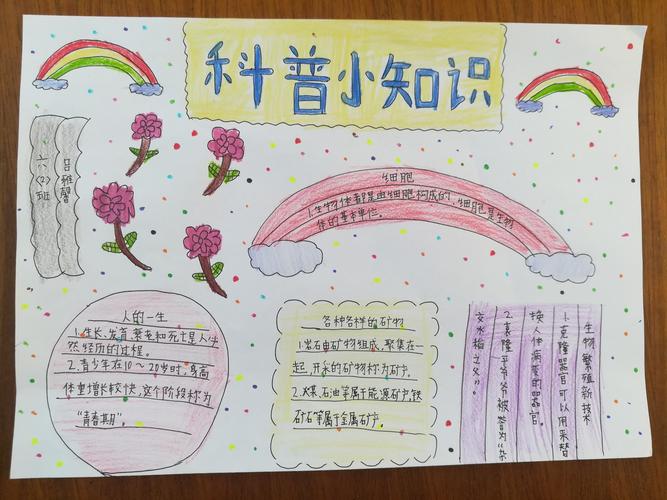 科普小知识
六(2)班
吕雅馨
细胞
1.生物体都是由细胞构成的,细胞是生物
体的基本单位。
人的一生
1.生长、发育、衰老和死亡是人生
然经历的过程。
2.青少年在10~20岁时,身高
体重增长较快,这个阶段称为
“青春期”
各种各样的矿物
1.岩石由矿物组成,聚集在一
起,开采的矿物称为矿产。
2.煤、石油等属于能源矿产,铁
矿石等属于金属矿产。
生物繁殖新技术
1.克隆器官可以用来替
换人体病变的器官。
2.袁隆平爷爷被誉为“杂
交水稻之父”。